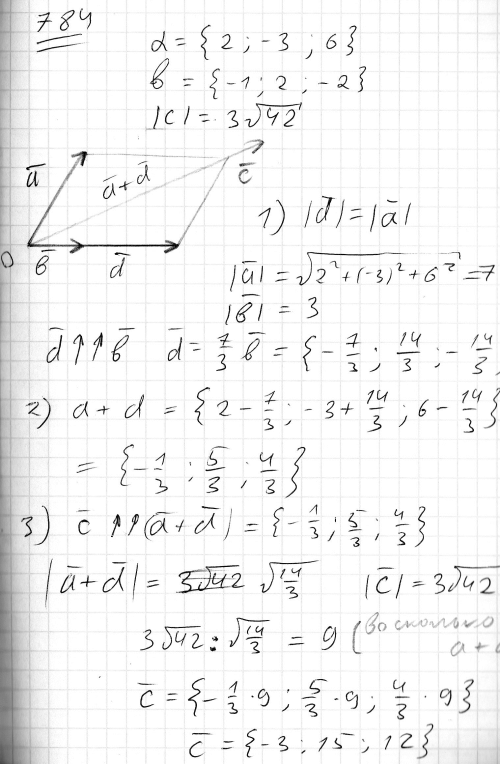 784
a = {2; -3; 6}
в = {-1; 2; -2}
|c| = 3√42
a̅
a̅+d̅
c̅
0
в̅
d̅
1) |d̅| = |a̅|
|a̅| = √2²+(-3)²+6² = 7
|в̅| = 3
d̅ ↑↑ в̅ d̅ = 7/3 в̅ = {-7/3; 14/3; -14/3
2) a + d = {2 - 7/3; -3 + 14/3; 6 - 14/3}
= {-1/3; 5/3; 4/3}
3) c̅ ↑↑ (a̅+d̅) = {-1/3; 5/3; 4/3}
|a̅+d̅| = 3√42 √14/3 |c̅| = 3√42
3√42 : √14/3 = 9 (во сколько
a+
c̅ = {-1/3 · 9; 5/3 · 9; 4/3 · 9}
c̅ = {-3; 15; 12}